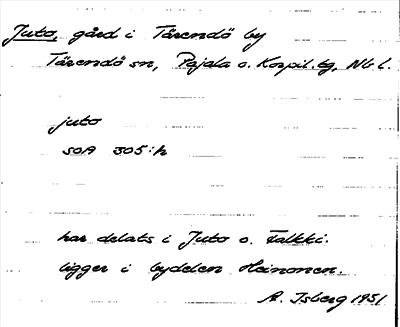 Juto, gård i Tärendö by
Tärendö sn, Pajala o. Korpil. tg, Nb l.
juto
SOA 305:h
har delats i Juto o. Falkki.
ligger i bydelen Heinonen.
A. Isberg 1951